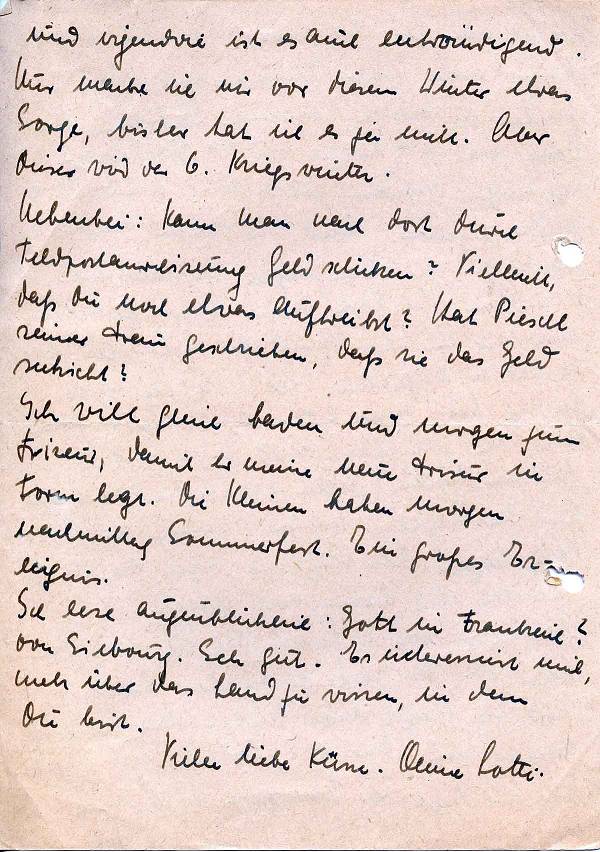 und irgendwie ist es auch entwürdigend.
Nur mache ich mir vor diesem Winter etwas
Sorge, bisher hat sie es ja nicht. Aber
dieses wird der 6. Kriegswinter.
Nebenbei: Kann man nach dort durch
Feldpostanweisung Geld schicken? Vielleicht,
daß Du noch etwas auftreibst? Hat Pieschl
seiner Frau geschrieben, daß sie das Geld
schickt?
Ich will gleich baden und morgen zum
Friseur, damit er meine neue Frisur in
Form legt. Die Kleinen haben morgen
nachmittag Sommerfest. Ein großes Er-
eignis.
Ich lese augenblicklich: Gott in Frankreich?
von Sieburg. Sehr gut. Es interessiert mich,
mehr über das Land zu wissen, in dem
Du bist.
Viele liebe Küsse. Deine Lotti.